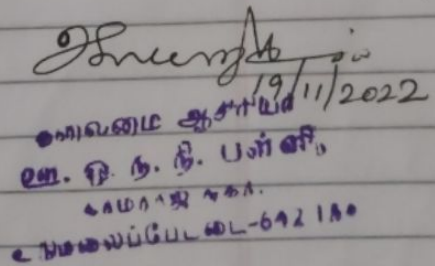 19/11/2022
தலைமை ஆசிரியர்
ஊ. ஒ. ந. நி. பள்ளி,
காமராஜ் நகர்.
உடுமலைப்பேட்டை-642